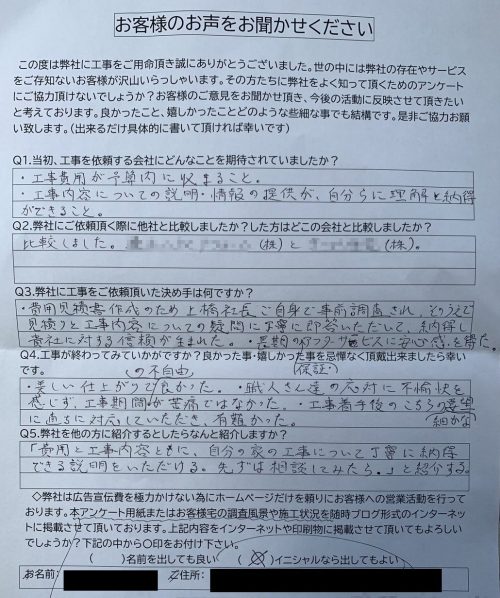 お客様のお声をお聞かせください
この度は弊社に工事をご用命頂き誠にありがとうございました。世の中には弊社の存在やサービス
をご存知ないお客様が沢山いらっしゃいます。その方たちに弊社をよく知って頂くためのアンケート
にご協力頂けないでしょうか？お客様のご意見をお聞かせ頂き、今後の活動に反映させて頂きたい
と考えております。良かったこと、嬉しかったことどのような些細な事でも結構です。是非ご協力お願
い致します。(出来るだけ具体的に書いて頂ければ幸いです)
Q1.当初、工事を依頼する会社にどんなことを期待されていましたか？
・工事費用が予算内に収まること。
・工事内容についての説明・情報の提供が、自分らに理解と納得
ができること。
Q2.弊社にご依頼頂く際に他社と比較しましたか？した方はどこの会社と比較しましたか？
比較しました。 (株)と (株)。
Q3.弊社に工事をご依頼頂いた決め手は何ですか？
・費用見積書作成のため上橋社長ご自身で事前調査され、そのうえで
見積りと工事内容についての疑問に丁寧に即答いただいて、納得し
貴社に対する信頼が生まれた。・長期のアフターサービスに安心感を得た。
(保証)
Q4.工事が終わってみていかがですか？良かった事・嬉しかった事を忌憚なく頂戴出来ましたら幸い
です。
の不自由
・美しい仕上がりで良かった。・職人さん達の応対に不愉快を
感じず、工事期間が苦痛ではなかった。・工事着手後のこちらの要望
細かな
に直ちに対応していただき、有難かった。
Q5.弊社を他の方に紹介するとしたらなんと紹介しますか？
「費用と工事内容ともに、自分の家の工事について丁寧に納得
できる説明をいただける。先ずは相談してみたら。」と紹介する。
◇弊社は広告宣伝費を極力かけない為にホームページだけを頼りにお客様への営業活動を行って
おります。本アンケート用紙またはお客様宅の調査風景や施工状況を随時ブログ形式のインターネッ
トに掲載させて頂いております。上記内容をインターネットや印刷物に掲載させて頂いてもよろしい
でしょうか？下記の中から〇印をお付け下さい。
( )名前を出しても良い ( )イニシャルなら出してもよい
お名前: ご住所: